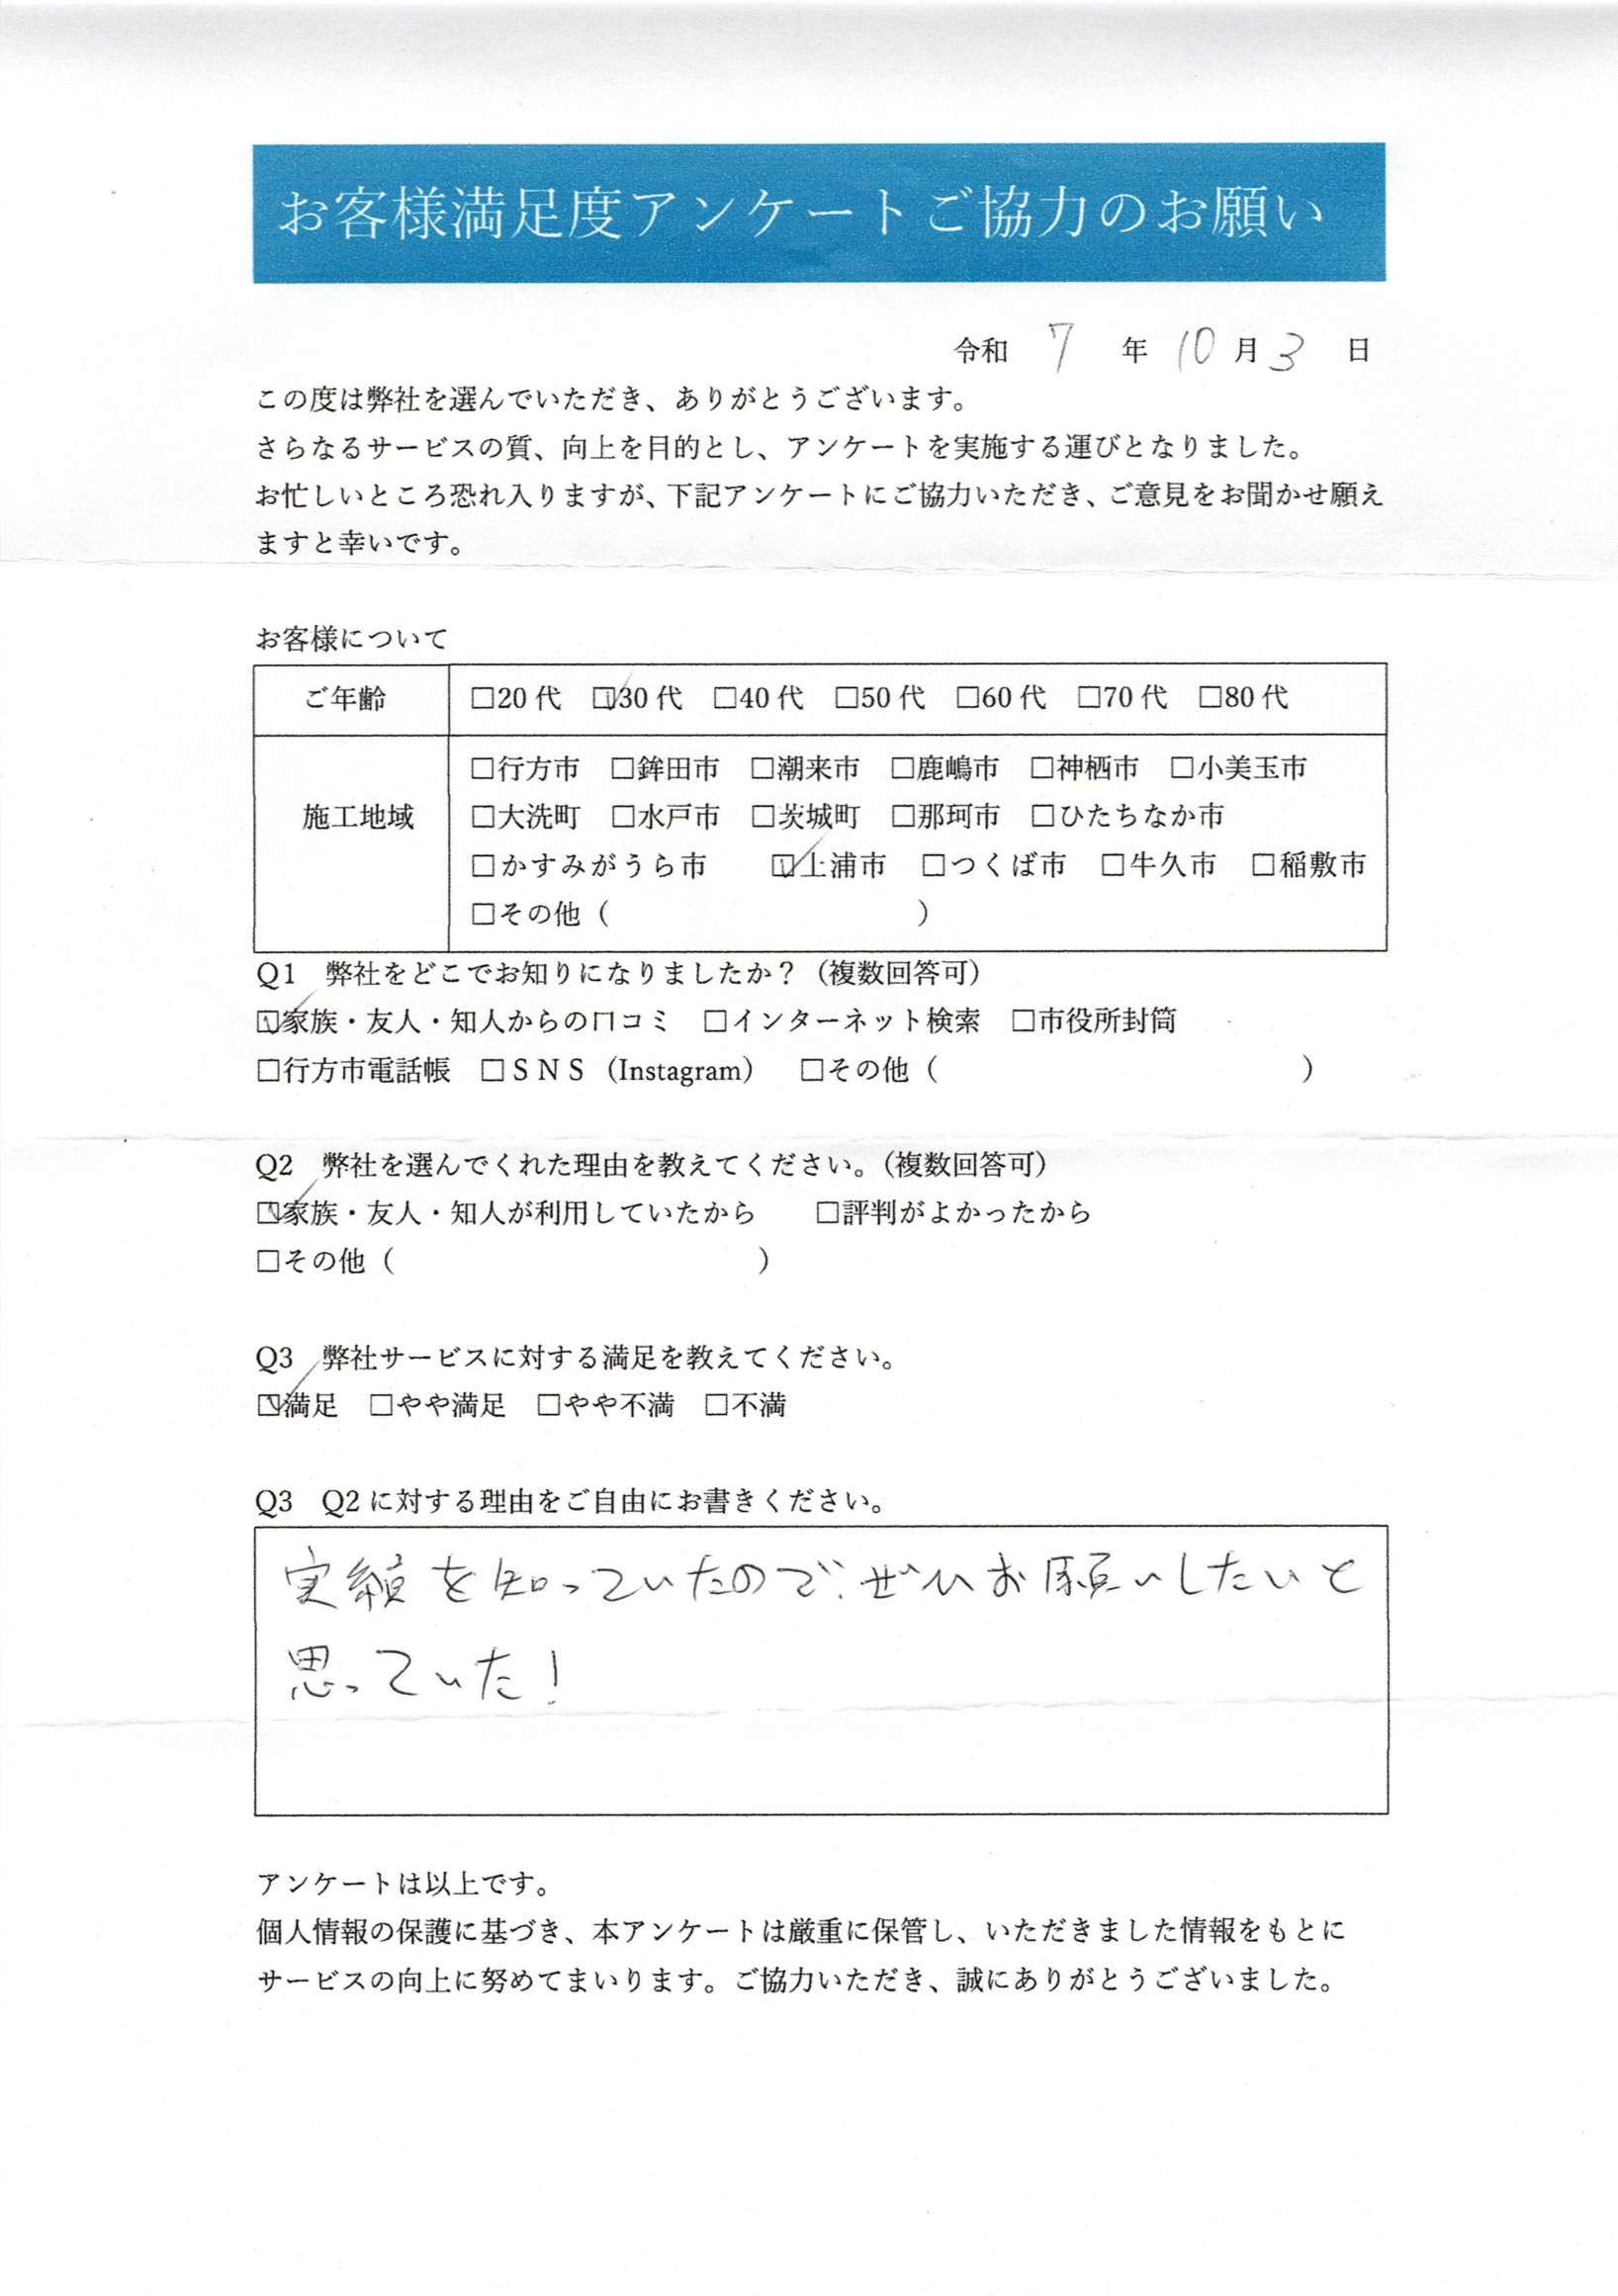 お客様満足度アンケートご協力のお願い
令和 7 年 10 月 3 日
この度は弊社を選んでいただき、ありがとうございます。
さらなるサービスの質、向上を目的とし、アンケートを実施する運びとなりました。
お忙しいところ恐れ入りますが、下記アンケートにご協力いただき、ご意見をお聞かせ願え
ますと幸いです。
お客様について
ご年齢 □20 代 ☑30 代 □40 代 □50 代 □60 代 □70 代 □80 代
□行方市 □鉾田市 □潮来市 □鹿嶋市 □神栖市 □小美玉市
施工地域 □大洗町 □水戸市 □茨城町 □那珂市 □ひたちなか市
□かすみがうら市 ☑土浦市 □つくば市 □牛久市 □稲敷市
□その他（ ）
Q1 弊社をどこでお知りになりましたか？（複数回答可）
☑家族・友人・知人からの口コミ □インターネット検索 □市役所封筒
□行方市電話帳 □ＳＮＳ（Instagram） □その他（ ）
Q2 弊社を選んでくれた理由を教えてください。（複数回答可）
☑家族・友人・知人が利用していたから □評判がよかったから
□その他（ ）
Q3 弊社サービスに対する満足を教えてください。
☑満足 □やや満足 □やや不満 □不満
Q3 Q2 に対する理由をご自由にお書きください。
実績を知っていたので、ぜひお願いしたいと
思っていた！
アンケートは以上です。
個人情報の保護に基づき、本アンケートは厳重に保管し、いただきました情報をもとに
サービスの向上に努めてまいります。ご協力いただき、誠にありがとうございました。